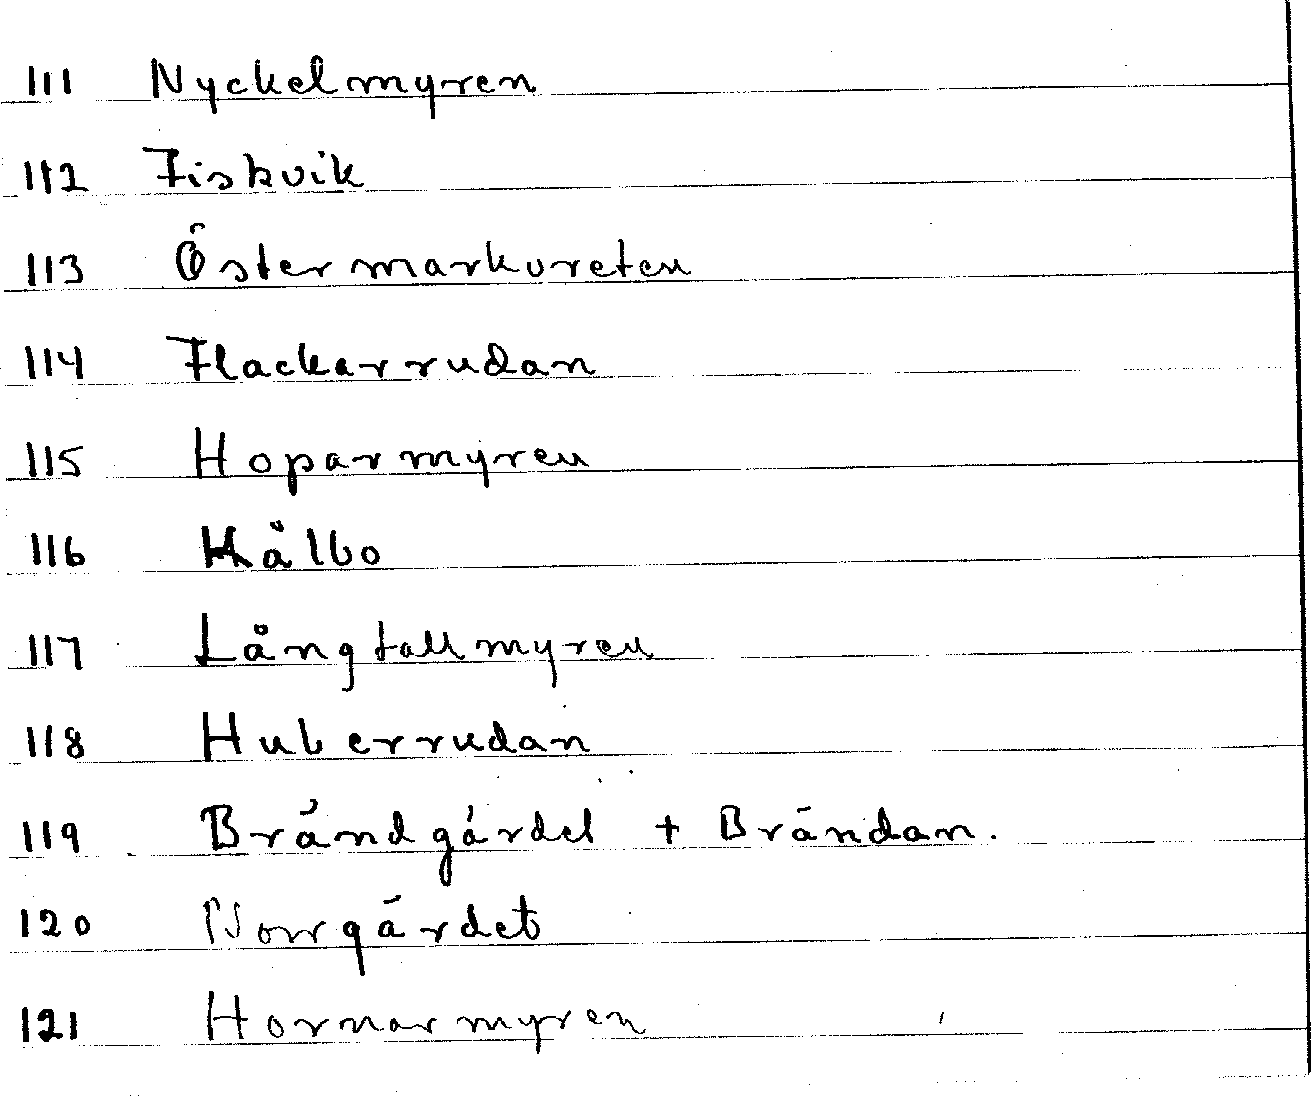 111 Nyckelmyren
112 Fiskvik
113 Östermarkvreten
114 Flackarrudan
115 Hoparmyren
116 Kälbo
117 Långtallmyren
118 Huberrudan
119 Brändgärdet + Brändan.
120 Norrgärdet
121 Hornarmyren